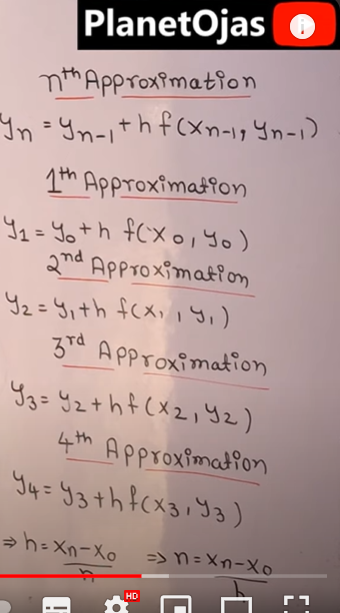 PlanetOjas
nth Approximation
yn = yn-1 + h f(xn-1, yn-1)
1th Approximation
y1 = y0 + h f(x0, y0)
2nd Approximation
y2 = y1 + h f(x1, y1)
3rd Approximation
y3 = y2 + h f(x2, y2)
4th Approximation
y4 = y3 + h f(x3, y3)
⇒ h = xn - x0 / n ⇒ n = xn - x0 / h
HD